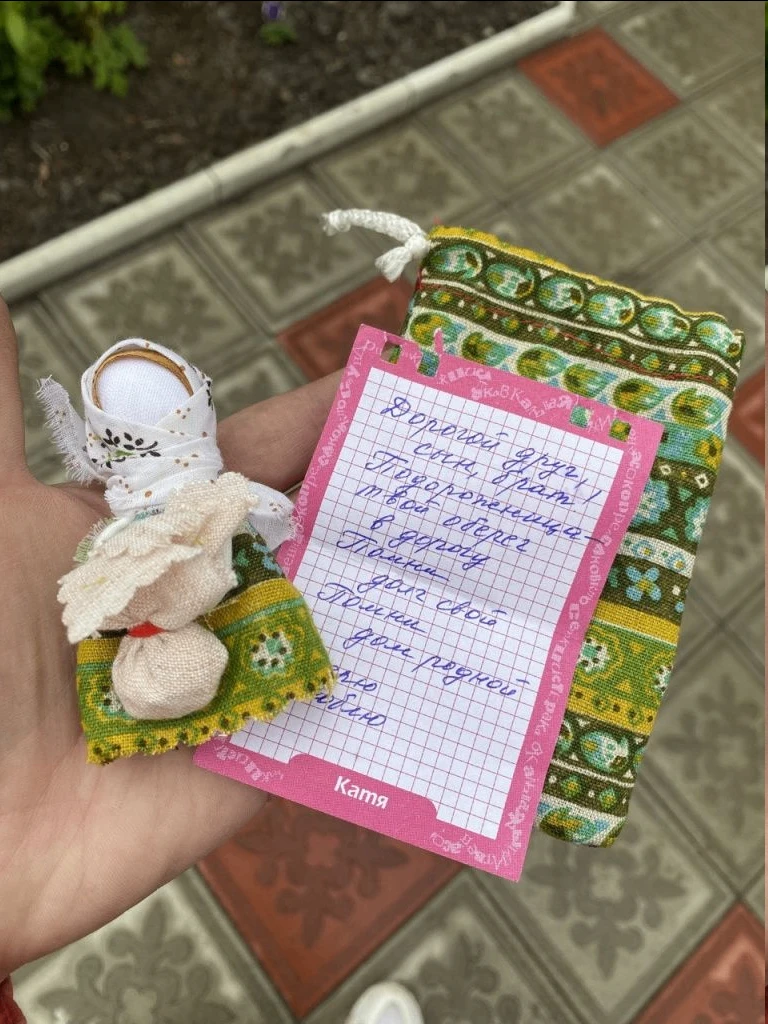 Дорогой друг,
сын, брат!
Подорожница –
твой оберег
в дорогу
Помни
долг свой
Помни
дом родной
Катя